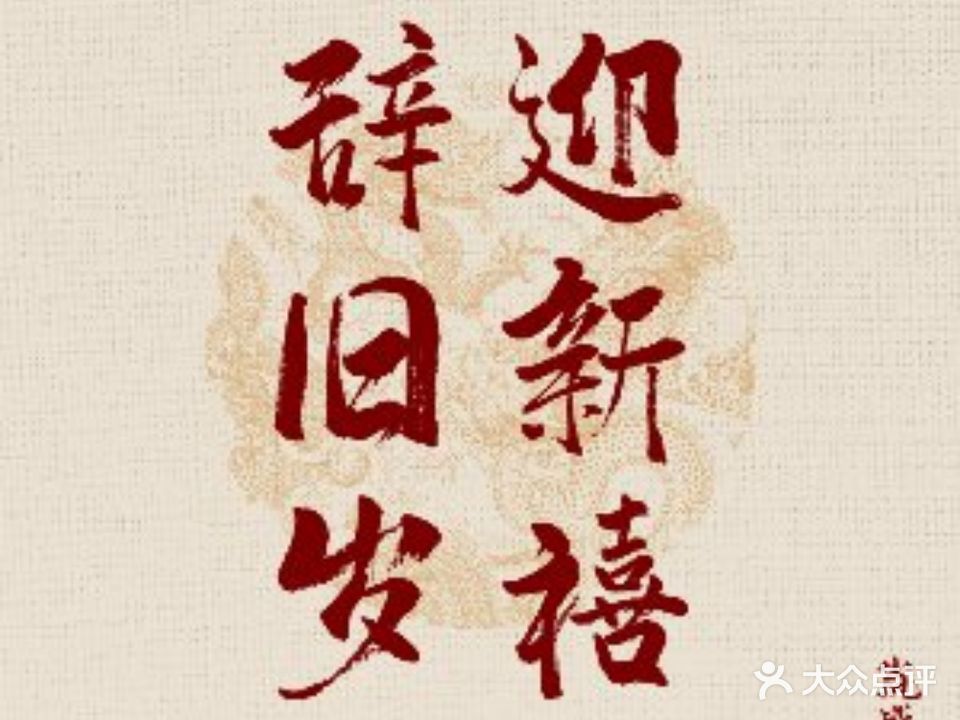 辞旧岁
迎新禧
大众点评